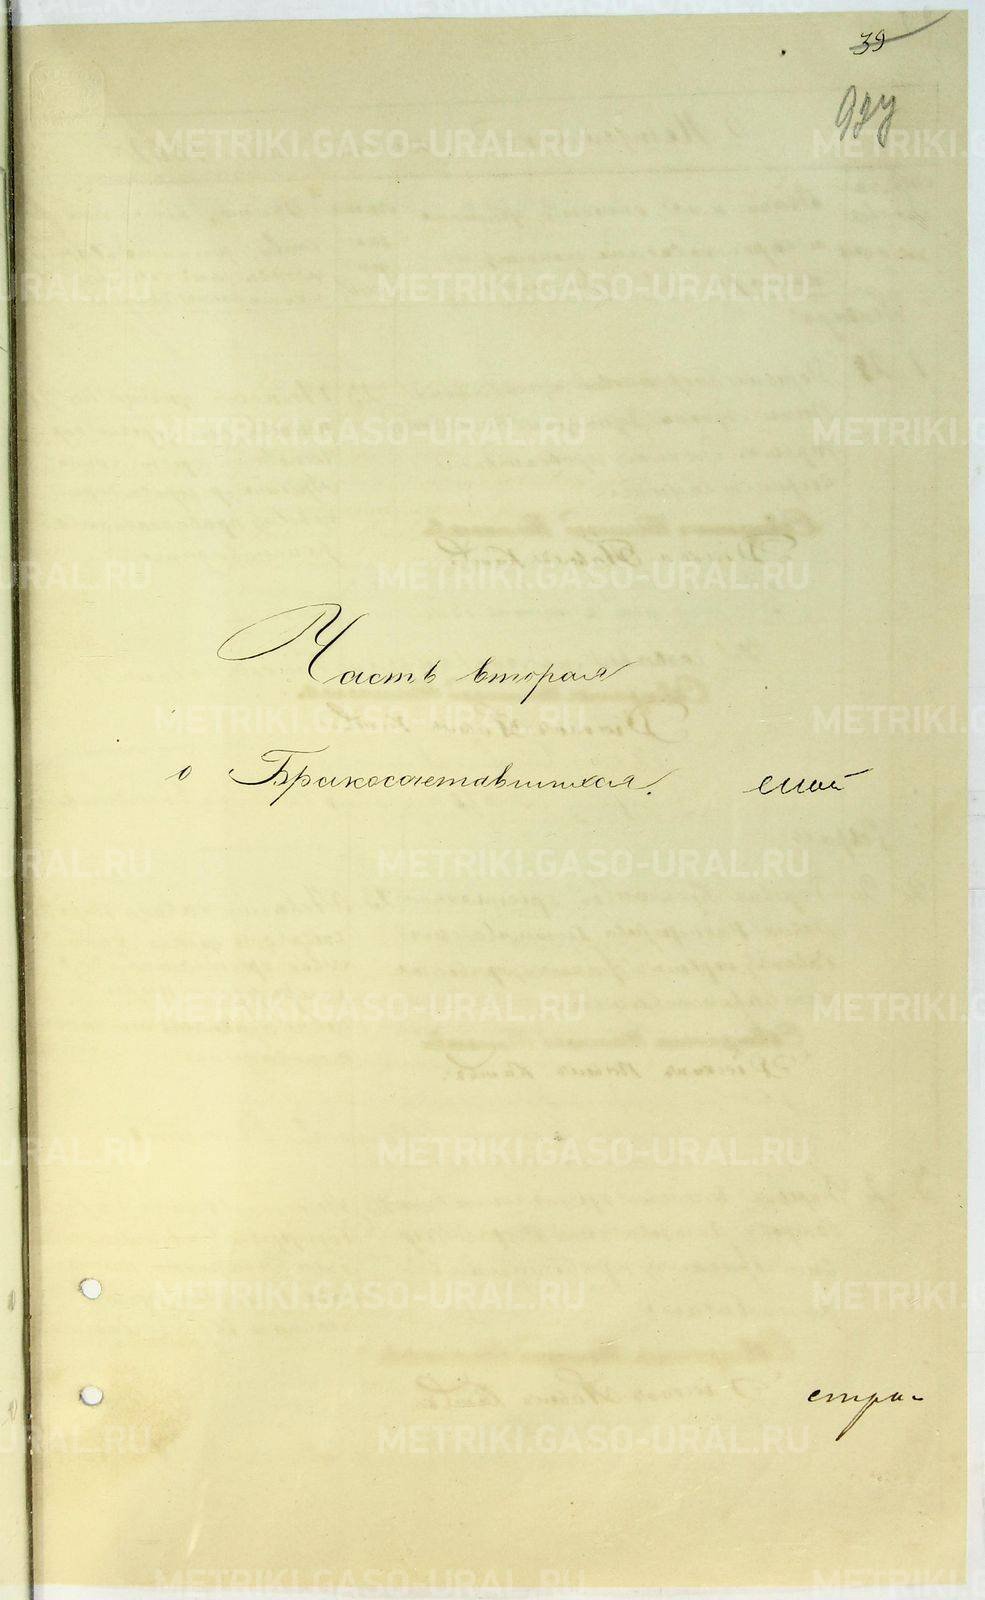 39
927
Часть вторая
о Бракосочетавшихся.
стра-
METRIKI.GASO-URAL.RU